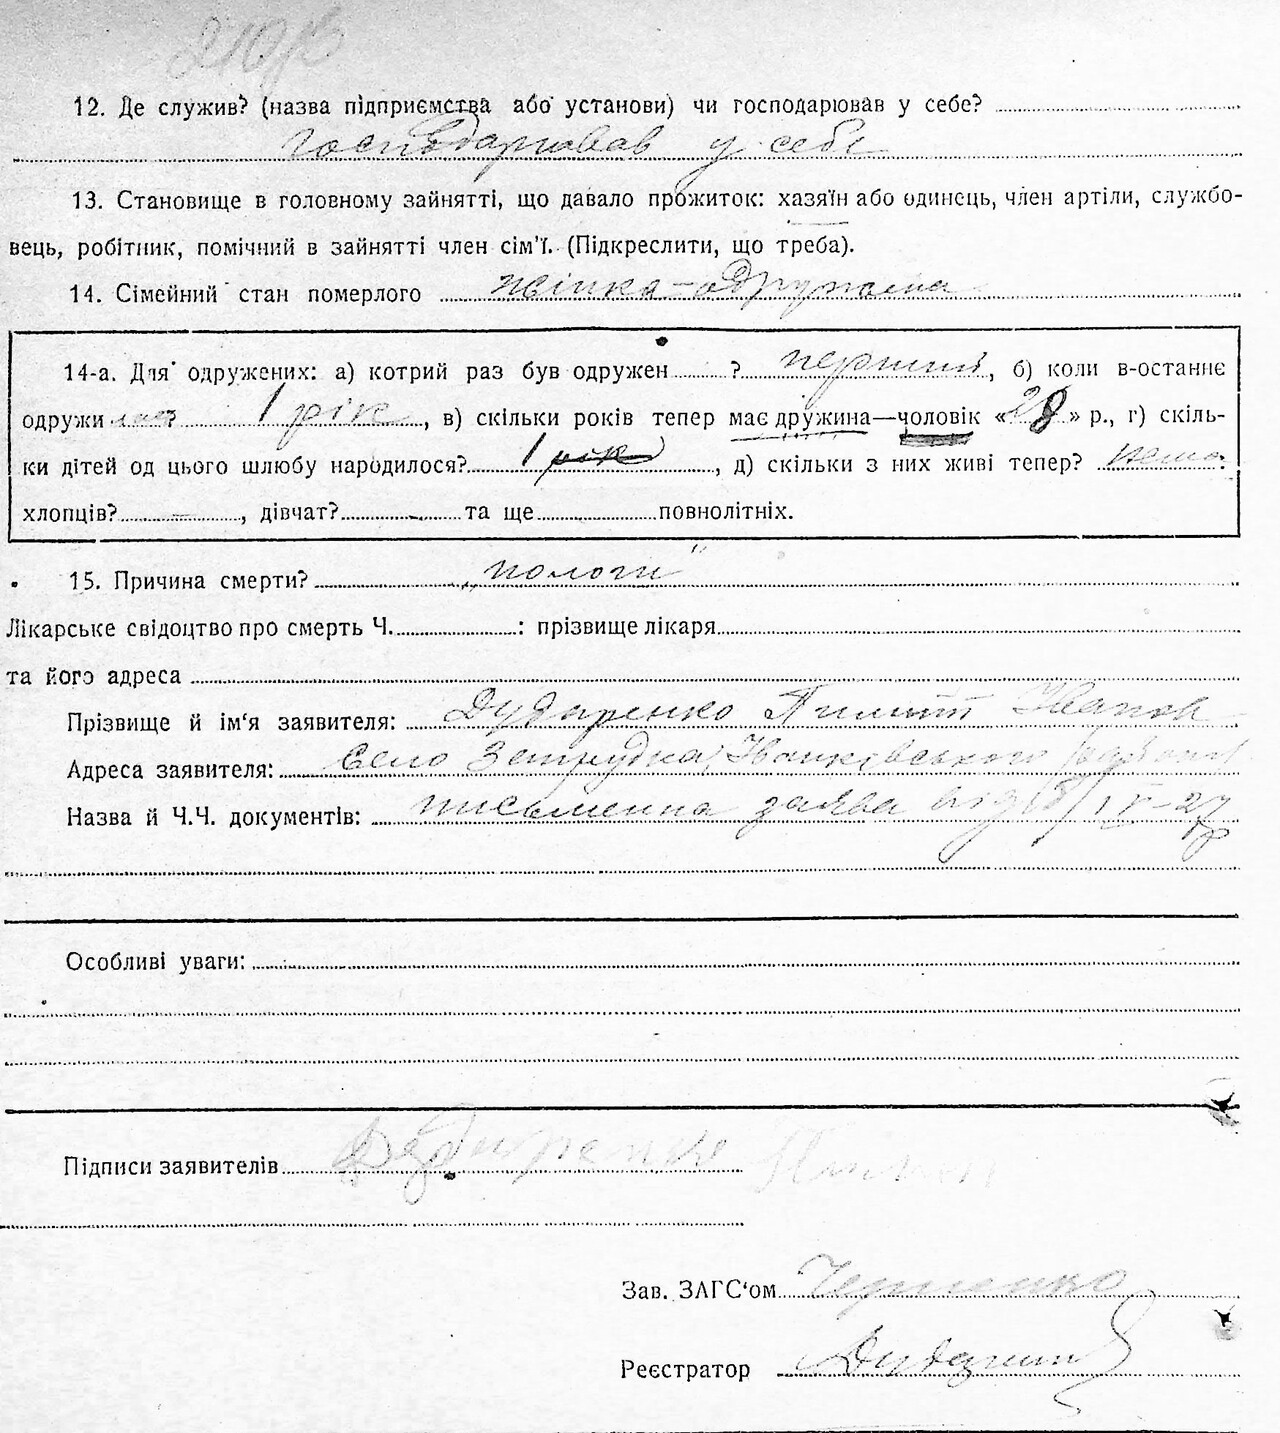 12. Де служив? (назва підприємства або установи) чи господарював у себе?
господарював у себе
13. Становище в головному зайнятті, що давало прожиток: хазяїн або одинець, член артіли, службо-
вець, робітник, помічний в зайнятті член сім'ї. (Підкреслити, що треба).
14. Сімейний стан померлого жінка-одружена
14-а. Для одружених: а) котрий раз був одружен ? перший, б) коли в-останнє
одружи лась? 1 рік, в) скільки років тепер має дружина—чоловік «28» р., г) скіль-
ки дітей од цього шлюбу народилося? 1 рік, д) скільки з них живі тепер? нема.
хлопців? —, дівчат? — та ще повнолітніх.
15. Причина смерти? „пологи"
Лікарське свідоцтво про смерть Ч. : прізвище лікаря
та його адреса
Прізвище й ім'я заявителя: Дударенко Пилип Іванов
Адреса заявителя: село Іванківського району
Назва й Ч.Ч. документів: письменна заява від IV-27р
Особливі уваги:
Підписи заявителів Дударенко
Зав. ЗАГС'ом
Реєстратор